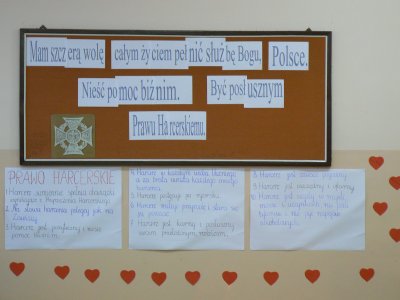 Mam szcz erą wolę całym ży ciem peł nić służ bę Bogu, Polsce.
Nieść po moc bliź nim. Być posł usznym
Prawu Ha rcerskiemu.
PRAWO HARCERSKIE
1. Harcerz sumiennie spełnia obowiązki
wynikające z Przyrzeczenia Harcerskiego.
2. Na słowie harcerza polegaj jak na
Zawiszy.
3. Harcerz jest pożyteczny i niesie
pomoc bliźnim.
4. Harcerz w każdym widzi bliźniego
a za brata uważa każdego innego
harcerza.
5. Harcerz postępuje po rycersku.
6. Harcerz miłuje przyrodę i stara się
ją poznać.
7. Harcerz jest karny i posłuszny
swoim przełożonym, rodzicom.
8. Harcerz jest zawsze pogodny.
9. Harcerz jest oszczędny i ofiarny.
10. Harcerz jest czysty w myśli,
mowie i uczynkach, nie pali
tytoniu i nie pije napojów
alkoholowych.